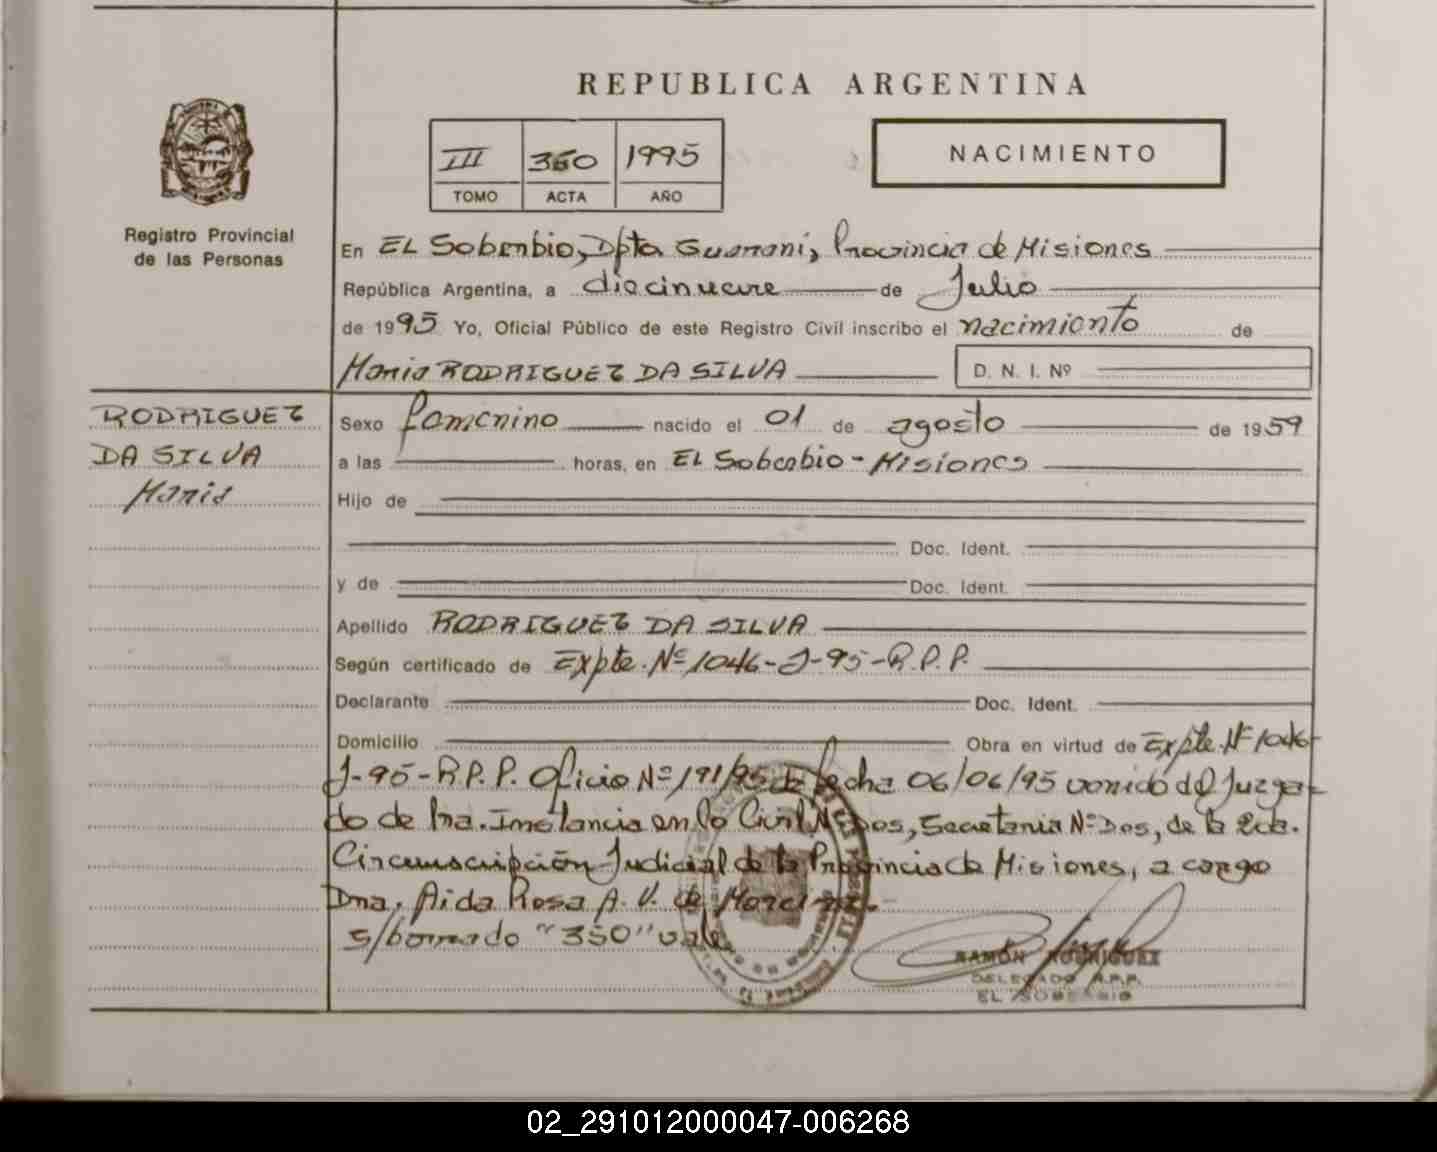 REPUBLICA ARGENTINA
III 350 1995
TOMO ACTA AÑO
NACIMIENTO
Registro Provincial
de las Personas
En EL Soberbio, Dpto Guarani, Provincia de Misiones
República Argentina, a diecinueve de Julio
de 1995 Yo, Oficial Público de este Registro Civil inscribo el nacimiento de
Maria RODRIGUEZ DA SILVA D. N. I. Nº
RODRIGUEZ
DA SILVA
Maria
Sexo femenino nacido el 01 de agosto de 1959
a las horas, en EL Soberbio - Misiones
Hijo de
Doc. Ident.
y de Doc. Ident.
Apellido RODRIGUEZ DA SILVA
Según certificado de Expte. Nº 1046-J-95-R.P.P.
Declarante Doc. Ident.
Domicilio Obra en virtud de Expte. Nº 1046-
J-95-R.P.P. Oficio Nº 191/95 de fecha 06/06/95 venido del Juzga-
do de 1ra. Instancia en lo Civil Nº Dos, Secretaria Nº Dos, de la 2da.
Circunscripción Judicial de la Provincia de Misiones, a cargo
Dra. Aida Rosa A. V. de
s/borrado "350" vale
RAMÓN RODRIGUEZ
DELEGADO R.P.P.
EL SOBERBIO
02_291012000047-006268